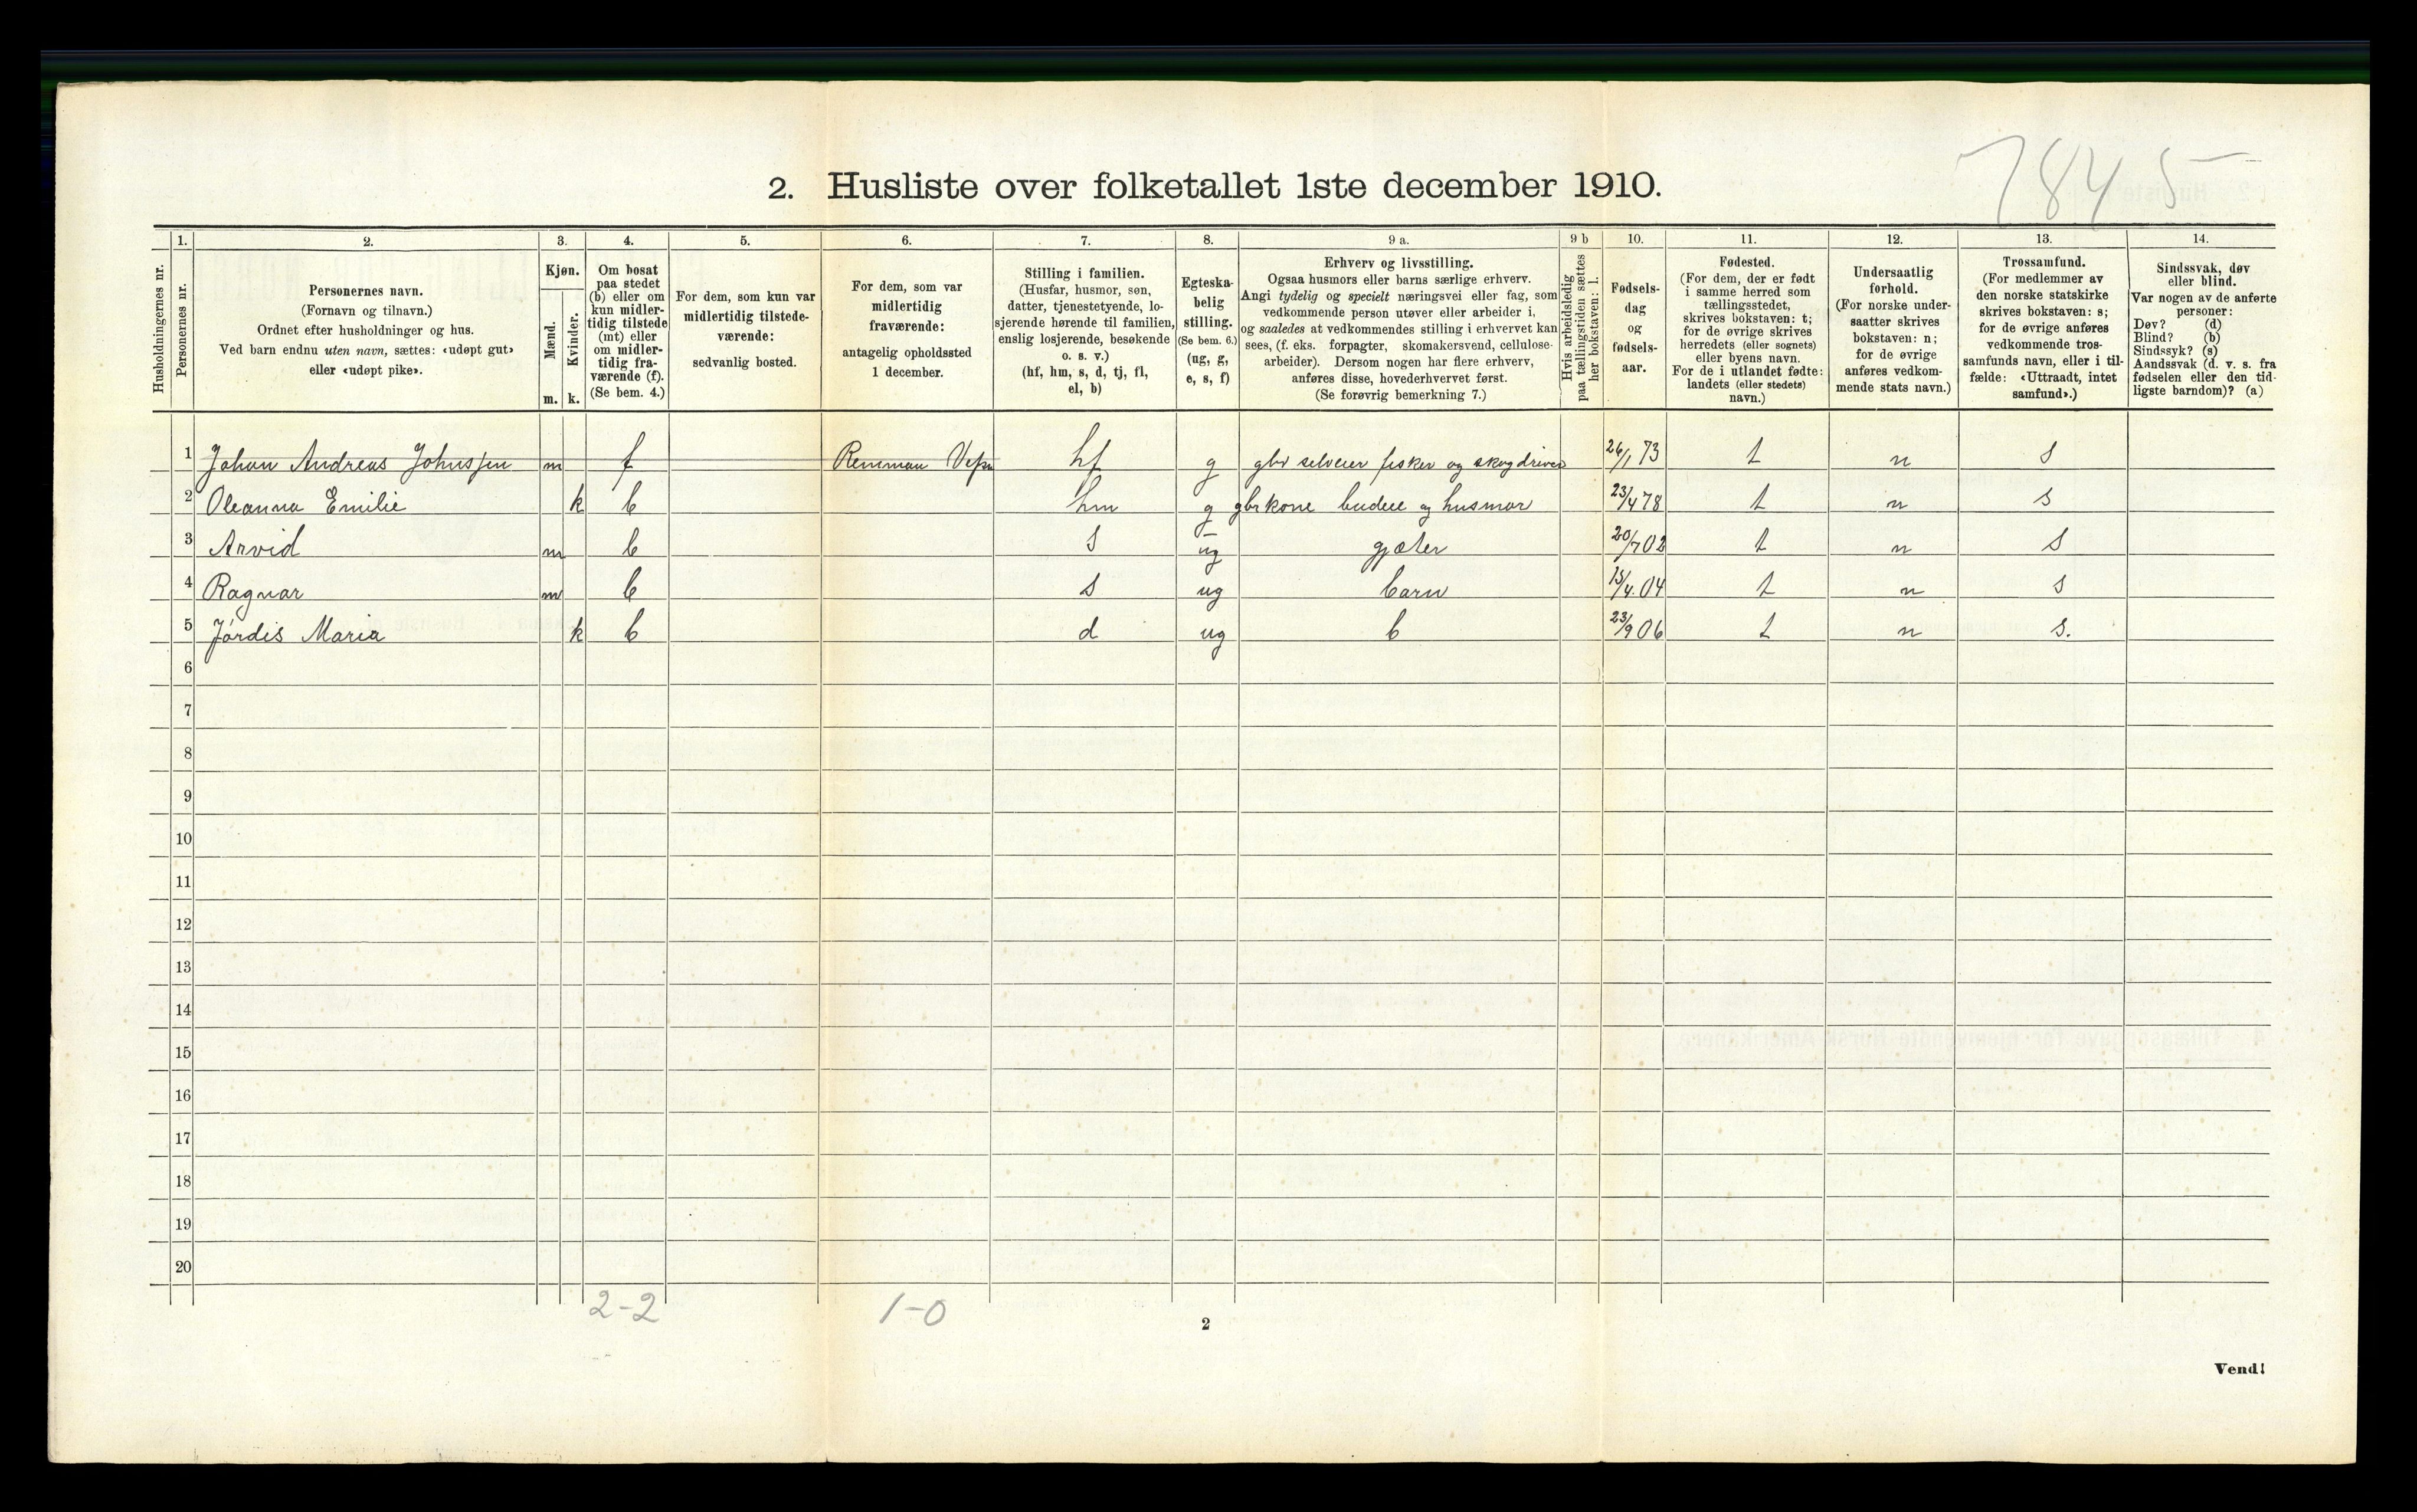 7845
2. Husliste over folketallet 1ste december 1910.
Husholdningernes nr.
1.
Personernes nr.
2.
Personernes navn.
(Fornavn og tilnavn.)
Ordnet efter husholdninger og hus.
Ved barn endnu uten navn, sættes: «udøpt gut»
eller «udøpt pike».
3.
Kjøn.
Mænd.
Kvinder.
m. k.
4.
Om bosat
paa stedet
(b) eller om
kun midler-
tidig tilstede
(mt) eller
om midler-
tidig fra-
værende (f).
(Se bem. 4.)
5.
For dem, som kun var
midlertidig tilstede-
værende:
sedvanlig bosted.
6.
For dem, som var
midlertidig
fraværende:
antagelig opholdssted
1 december.
7.
Stilling i familien.
(Husfar, husmor, søn,
datter, tjenestetyende, lo-
sjerende hørende til familien,
enslig losjerende, besøkende
o. s. v.)
(hf, hm, s, d, tj, fl,
el, b)
8.
Egteska-
belig
stilling.
(Se bem. 6.)
(ug, g,
e, s, f)
9 a.
Erhverv og livsstilling.
Ogsaa husmors eller barns særlige erhverv.
Angi tydelig og specielt næringsvei eller fag, som
vedkommende person utøver eller arbeider i,
og saaledes at vedkommendes stilling i erhvervet kan
sees, (f. eks. forpagter, skomakersvend, cellulose-
arbeider). Dersom nogen har flere erhverv,
anføres disse, hovederhvervet først.
(Se forøvrig bemerkning 7.)
9 b
Hvis arbeidsledig
paa tællingstiden sættes
her bokstaven: l.
10.
Fødsels-
dag
og
fødsels-
aar.
11.
Fødested.
(For dem, der er født
i samme herred som
tællingsstedet,
skrives bokstaven: t;
for de øvrige skrives
herredets (eller sognets)
eller byens navn.
For de i utlandet fødte:
landets (eller stedets)
navn.)
12.
Undersaatlig
forhold.
(For norske under-
saatter skrives
bokstaven: n;
for de øvrige
anføres vedkom-
mende stats navn.)
13.
Trossamfund.
(For medlemmer av
den norske statskirke
skrives bokstaven: s;
for de øvrige anføres
vedkommende tros-
samfunds navn, eller i til-
fælde: «Uttraadt, intet
samfund».)
14.
Sindssvak, døv
eller blind.
Var nogen av de anførte
personer:
Døv? (d)
Blind? (b)
Sindssyk? (s)
Aandssvak (d. v. s. fra
fødselen eller den tid-
ligste barndom)? (a)
1 Johan Andreas Johnssen m f hf g gbr selveier fisker og skogdriver 26/1 73 t n s
2 Oleanna Emilie k b hm g gbrkone budeie og husmor 23/4 78 t n s
3 Arvid m b s ug gjæter 20/7 02 t n s
4 Ragnar m b s ug barn 15/4. 04 t n s
5 Jórdis Maria k b d ug b 23/9 06 t n s.
6
7
8
9
10
11
12
13
14
15
16
17
18
19
20
2-2 1-0
2
Vend!